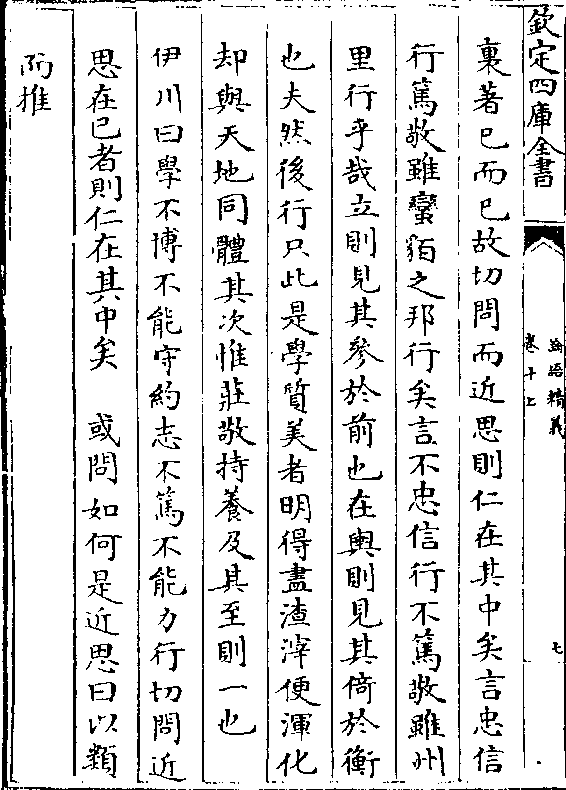 欽定四庫全書
論語精義
卷十上
七
裏著已而已故切問而近思則仁在其中矣言忠信
行篤敬雖蠻貊之邦行矣言不忠信行不篤敬雖州
里行乎哉立則見其參於前也在輿則見其倚於衡
也夫然後行只此是學質美者明得盡渣滓便渾化
却與天地同體其次惟莊敬持養及其至則一也
伊川曰學不博不能守約志不篤不能力行切問近
思在已者則仁在其中矣 或問如何是近思曰以類
而推